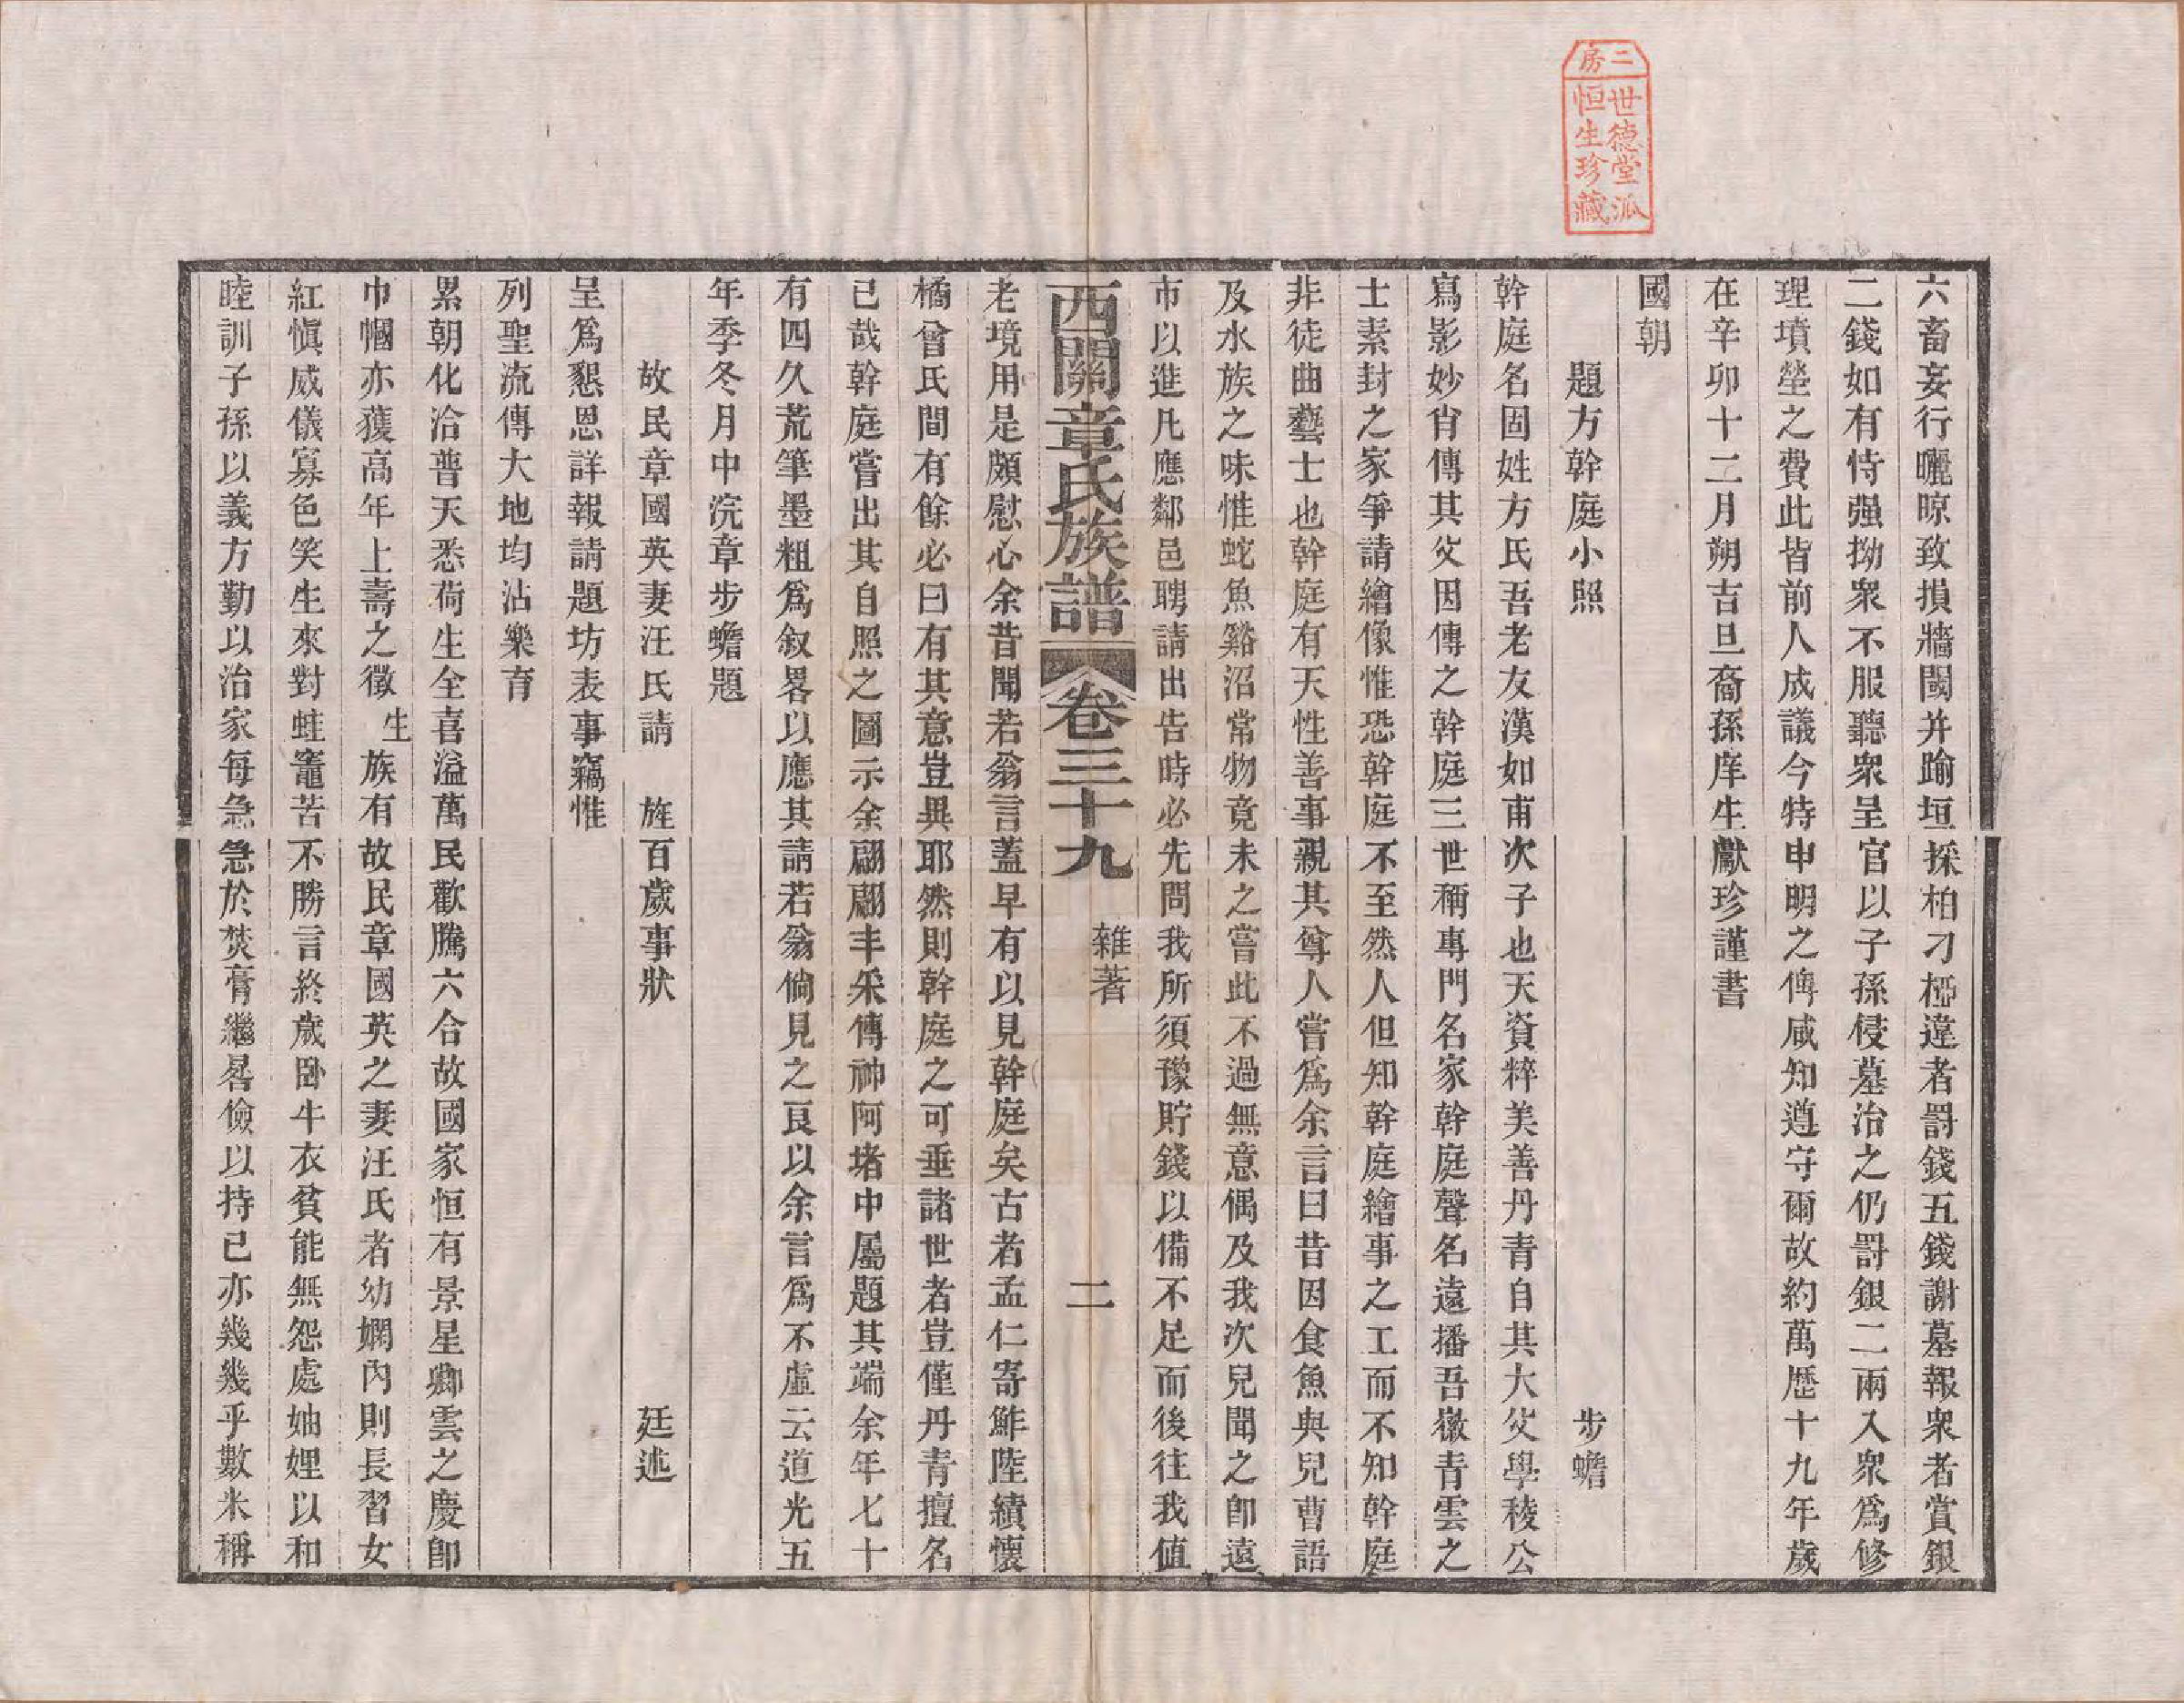 二房
世德堂派
恒生珍藏
六畜妄行曬晾致損牆閩并踰垣採柏刁椏違者罰錢五錢謝墓報衆者賞銀
二錢如有恃强拗衆不服聽衆呈官以子孫侵墓治之仍罰銀二兩入衆爲修
理墳塋之費此皆前人成議今特申明之俾咸知遵守爾故約萬歴十九年歲
在辛卯十二月朔吉旦裔孫庠生獻珍謹書
國朝
題方幹庭小照 步蟾
幹庭名固姓方氏吾老友漢如甫次子也天資粹美善丹青自其大父學稜公
寫影妙肖傳其父因傳之幹庭三世稱專門名家幹庭聲名遠播吾徽青雲之
士素封之家爭請繪像惟恐幹庭不至然人但知幹庭繪事之工而不知幹庭
非徒曲藝士也幹庭有天性善事親其尊人嘗爲余言曰昔因食魚與兒曹語
及水族之味惟蛇魚谿沼常物竟未之嘗此不過無意偶及我次兒聞之卽遠
市以進凡應鄰邑聘請出告時必先問我所須豫貯錢以備不足而後往我値
西關章氏族譜 卷三十九 雜著 二
老境用是頗慰心余昔聞若翁言蓋早有以見幹庭矣古者孟仁寄鮓陸績懷
橘曾氏間有餘必曰有其意豈異耶然則幹庭之可垂諸世者豈僅丹青擅名
已哉幹庭嘗出其自照之圖示余翩翩丰采傳神阿堵中屬題其端余年七十
有四久荒筆墨粗爲叙畧以應其請若翁倘見之良以余言爲不虛云道光五
年季冬月中浣章步蟾題
故民章國英妻汪氏請 旌百歲事狀 廷述
呈爲懇恩詳報請題坊表事竊惟
列聖流傳大地均沾樂育
累朝化洽普天悉荷生全喜溢萬民歡騰六合故國家恒有景星卿雲之慶卽
巾幗亦獲高年上壽之徵生族有故民章國英之妻汪氏者幼嫻內則長習女
紅愼威儀寡色笑生來對蛙竈苦不勝言終歲卧牛衣貧能無怨處妯娌以和
睦訓子孫以義方勤以治家每急急於焚膏繼晷儉以持己亦幾幾乎數米稱